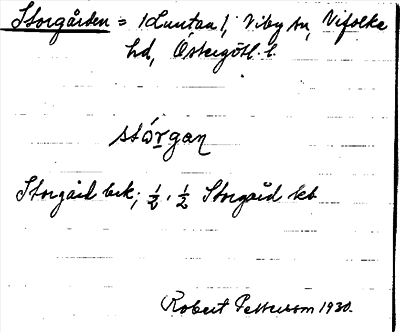 Storgården = 1 Luntan 1, Viby sn, Vifolka
hd, Östergötl. l.
stórgan
Storgård brk; ½, ½ Storgård kb
Robert Pettersson 1930.